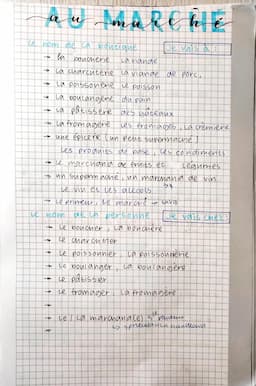 AU MARCHÉ
au marché
Le nom de la boutique Je vais à :
→ la boucherie la viande
→ la charcuterie la viande de porc,
→ la poissonnerie le poisson
→ la boulangerie du pain
→ la pâtisserie des gâteaux
→ la fromagerie les fromages, la crèmerie
→ une épicerie (un petit supermarché)
les produits de base, les condiments
→ le marchand de fruits et légumes
→ un supermarché, un marchand de vin
le vin et les alcools
→ le primeur, le marché →
Le nom de la personne Je vais chez:
→ le boucher, la bouchère
→ le charcutier
→ le poissonnier, la poissonnerie
→ le boulanger, la boulangère
→ le pâtissier
→ le fromager, la fromagère
→
→ le / la marchand(e)
→